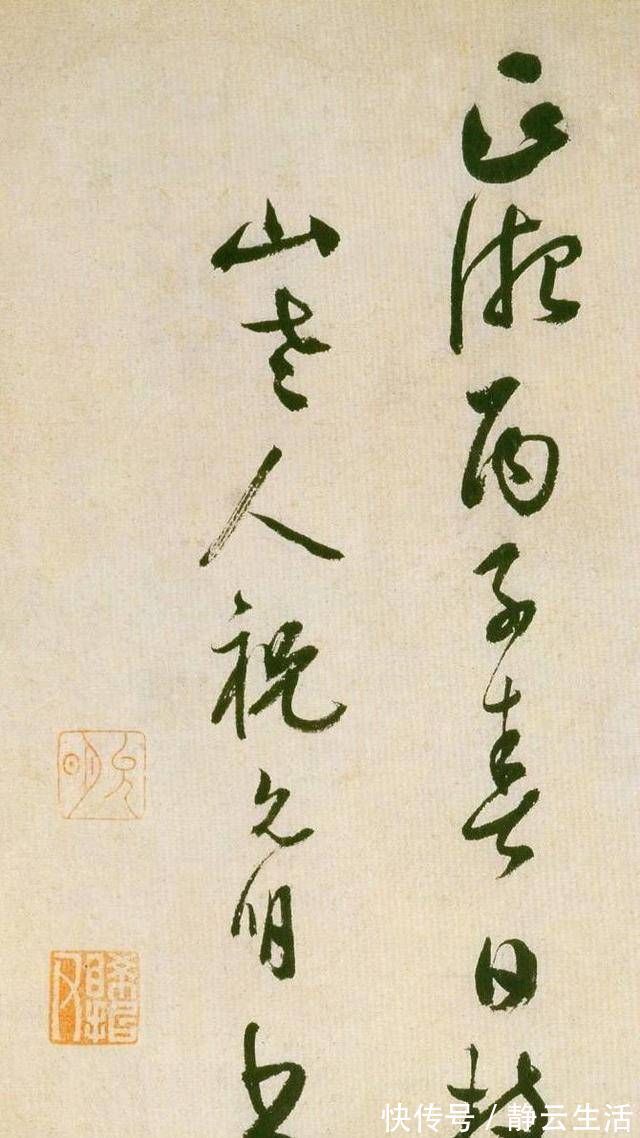 正德丙子春日枝
山老人祝允明書
允明
快传号 / 静云生活